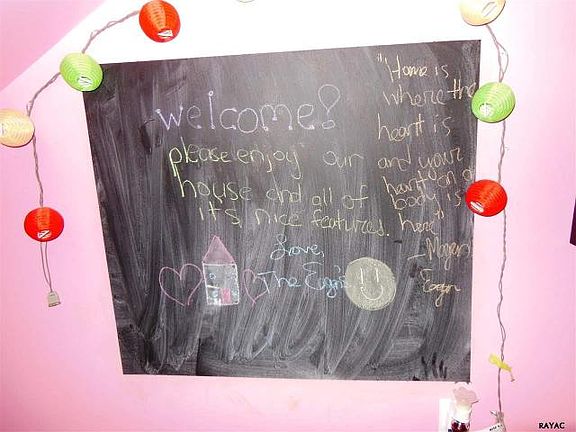 welcome!
please enjoy our
house and all of
it's nice features.
Love,
The
"Home is
where the
heart is
and your
heart
body is
here"
RAYAC